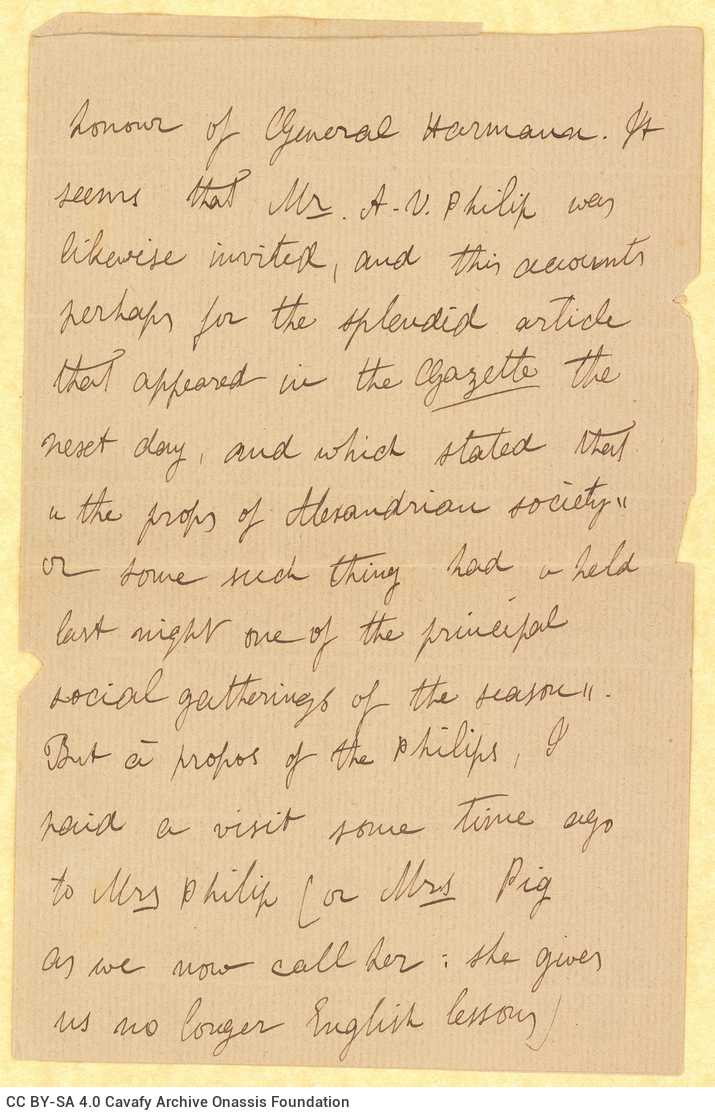 honour of General Harmann. It
seems that Mr. A-V. Philip was
likewise invited, and this accounts
perhaps for the splendid article
that appeared in the Gazette the
next day, and which stated that
" the props of Alexandrian society "
or some such thing had " held
last night one of the principal
social gatherings of the season ".
But à propos of the Philips, I
paid a visit some time ago
to Mrs Philip (or Mrs Pig
as we now call her : she gives
us no longer English lessons)
CC BY-SA 4.0 Cavafy Archive Onassis Foundation